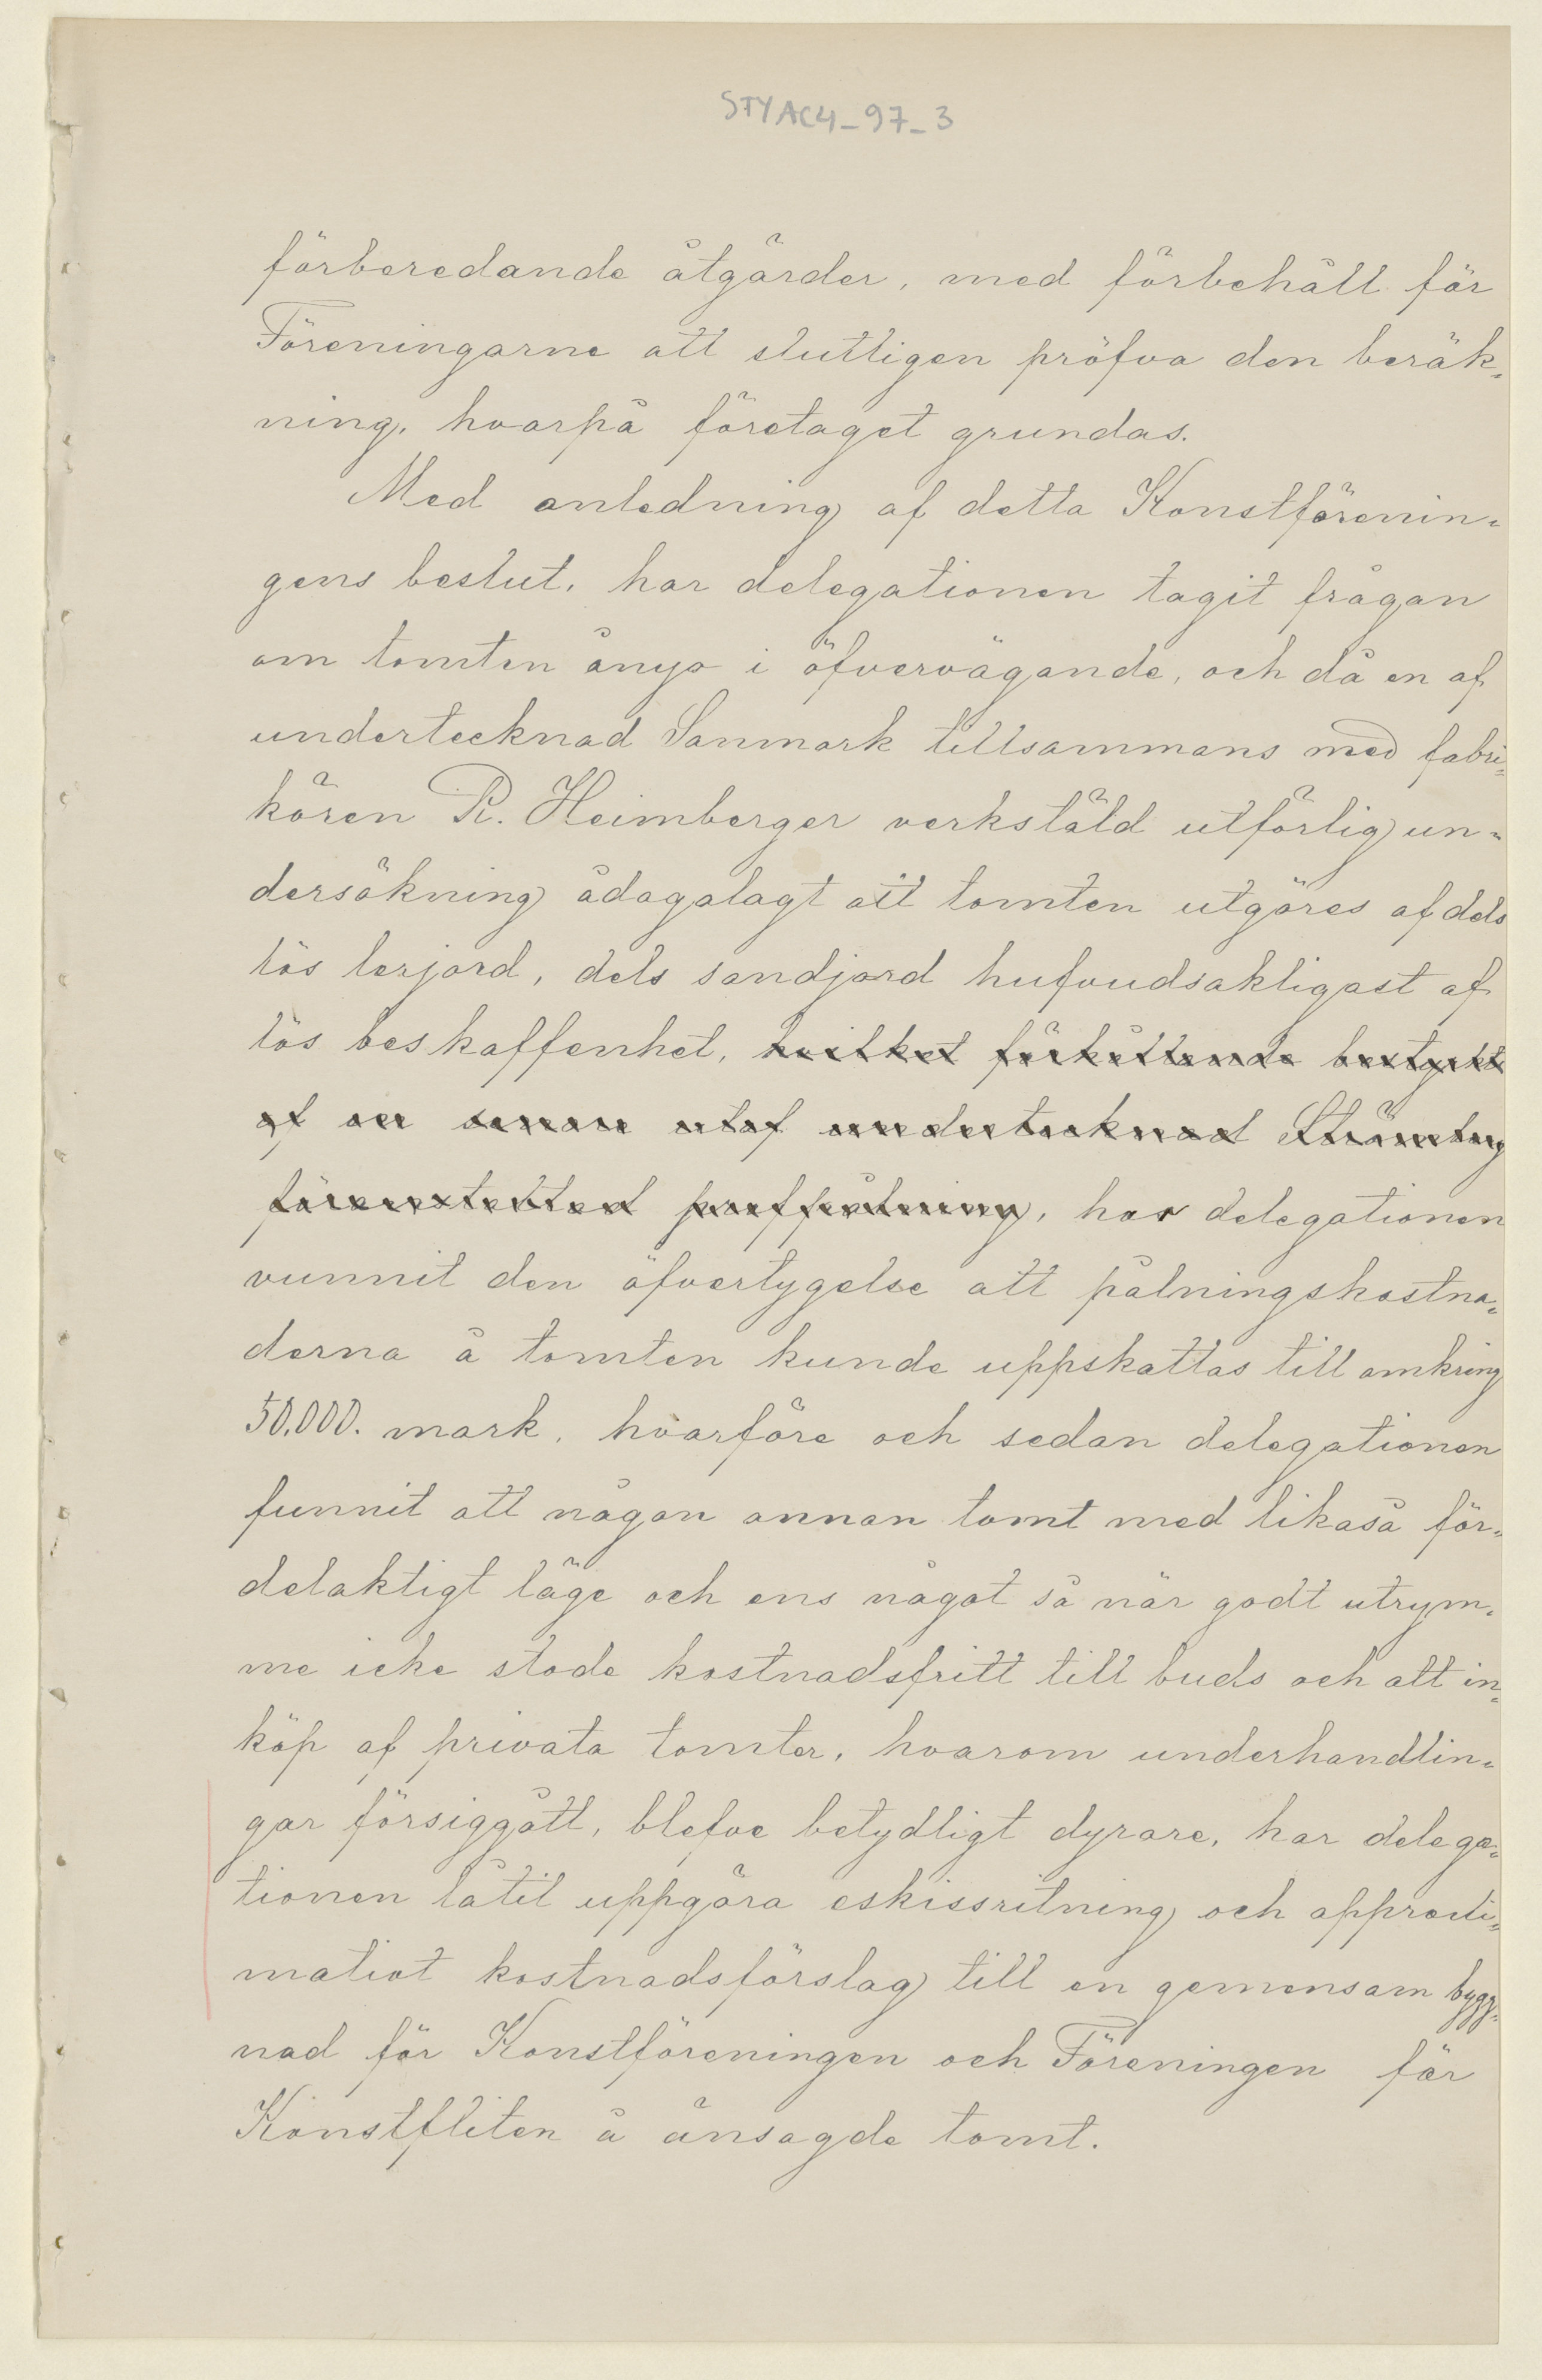 STYAC4_97_3
förberedande åtgärder, med förbehåll för
Föreningarne att slutligen pröfva den beräk-
ning, hvarpå företaget grundas.
Med anledning af detta Konstförenin-
gens beslut, har delegationen tagit frågan
om tomten ånyo i öfvervägande, och då en af
undertecknad Sanmark tillsammans med fabri-
kören R. Heimberger verkstäld utförlig un-
dersökning ådagalagt att tomten utgöres af dels
lös lerjord, dels sandjord hufvudsakligast af
lös beskaffenhet, hvilket förhållande bestyrkts
af en senare utaf undertecknad Strömberg
förenstaltad profpålning, har delegationen
vunnit den öfvertygelse att pålningskostna-
derna å tomten kunde uppskattas till omkring
50,000. mark, hvarföre och sedan delegationen
funnit att någon annan tomt med likaså för-
delaktigt läge och ens något så när godt utrym-
me icke stode kostnadsfritt till buds och att in-
köp af privata tomter, hvarom underhandlin-
gar försiggått, blefve betydligt dyrare, har delega-
tionen låtit uppgöra eskissritning och approxi-
mativt kostnadsförslag till en gemensam bygg-
nad för Konstföreningen och Föreningen för
Konstfliten å ånsagde tomt.